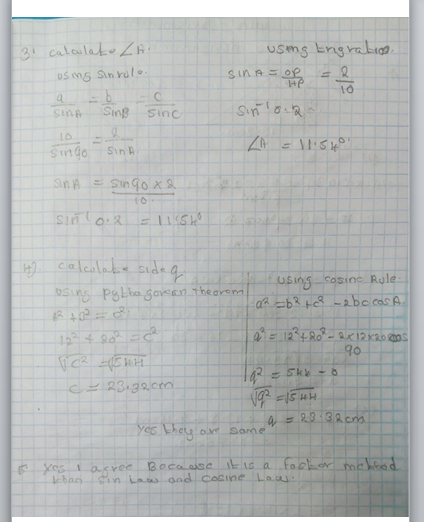 3) calculate ∠A.
using trig ratios.
using sin rule.
sin A = op/HP = 2/10
a/sin A = b/sin B = c/sin C
sin⁻¹ 0.2
10/sin 90 = 2/sin A
∠A = 11.54°
sin A = sin 90 × 2/10
sin⁻¹ 0.2 = 11.54°
4) calculate side q
using pythagorean Theorem
a² + b² = c²
12² + 20² = c²
√c² = √544
c = 23.32cm
using cosine Rule.
a² = b² + c² - 2bc cos A
q² = 12² + 20² - 2×12×20 cos
90
q² = 544 - 0
√q² = √544
q = 23.32cm
Yes they are same
5. Yes I agree Because it is a faster method
than sin Law and cosine Law.